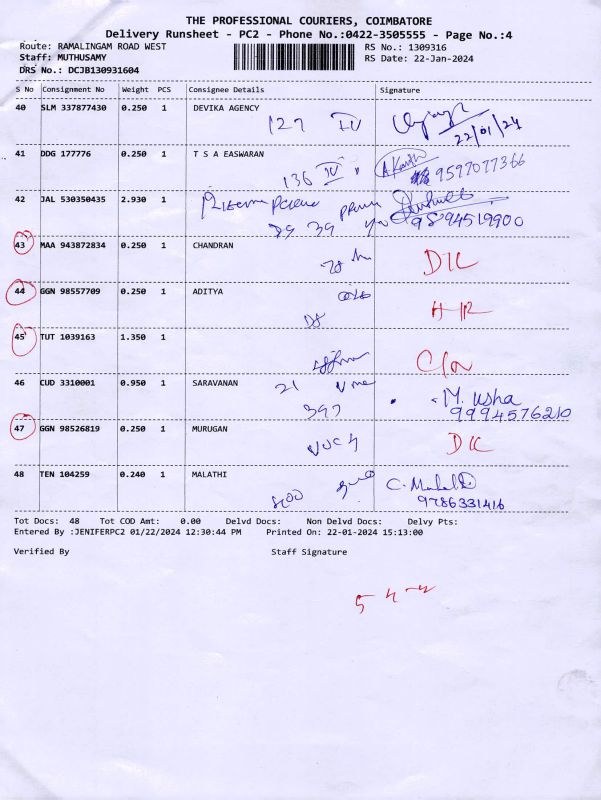 THE PROFESSIONAL COURIERS, COIMBATORE
Delivery Runsheet - PC2 - Phone No.:0422-3505555 - Page No.:4
Route: RAMALINGAM ROAD WEST RS No.: 1309316
Staff: MUTHUSAMY RS Date: 22-Jan-2024
DRS No.: DCJB130931604
S No Consignment No Weight PCS Consignee Details Signature
40 SLM 337877430 0.250 1 DEVIKA AGENCY
127 IV
22/01/24
41 DDG 177776 0.250 1 T S A EASWARAN
136 IV 9597077366
42 JAL 530350435 2.930 1
DS 39 9894519900
43 MAA 943872834 0.250 1 CHANDRAN
DIC
44 GGN 98557709 0.250 1 ADITYA
45 TUT 1039163 1.350 1
46 CUD 3310001 0.950 1 SARAVANAN 21
397 M. Usha
9994576210
47 GGN 98526819 0.250 1 MURUGAN
DIC
48 TEN 104259 0.240 1 MALATHI
9786331416
Tot Docs: 48 Tot COD Amt: 0.00 Delvd Docs: Non Delvd Docs: Delvy Pts:
Entered By :JENIFERPC2 01/22/2024 12:30:44 PM Printed On: 22-01-2024 15:13:00
Verified By Staff Signature